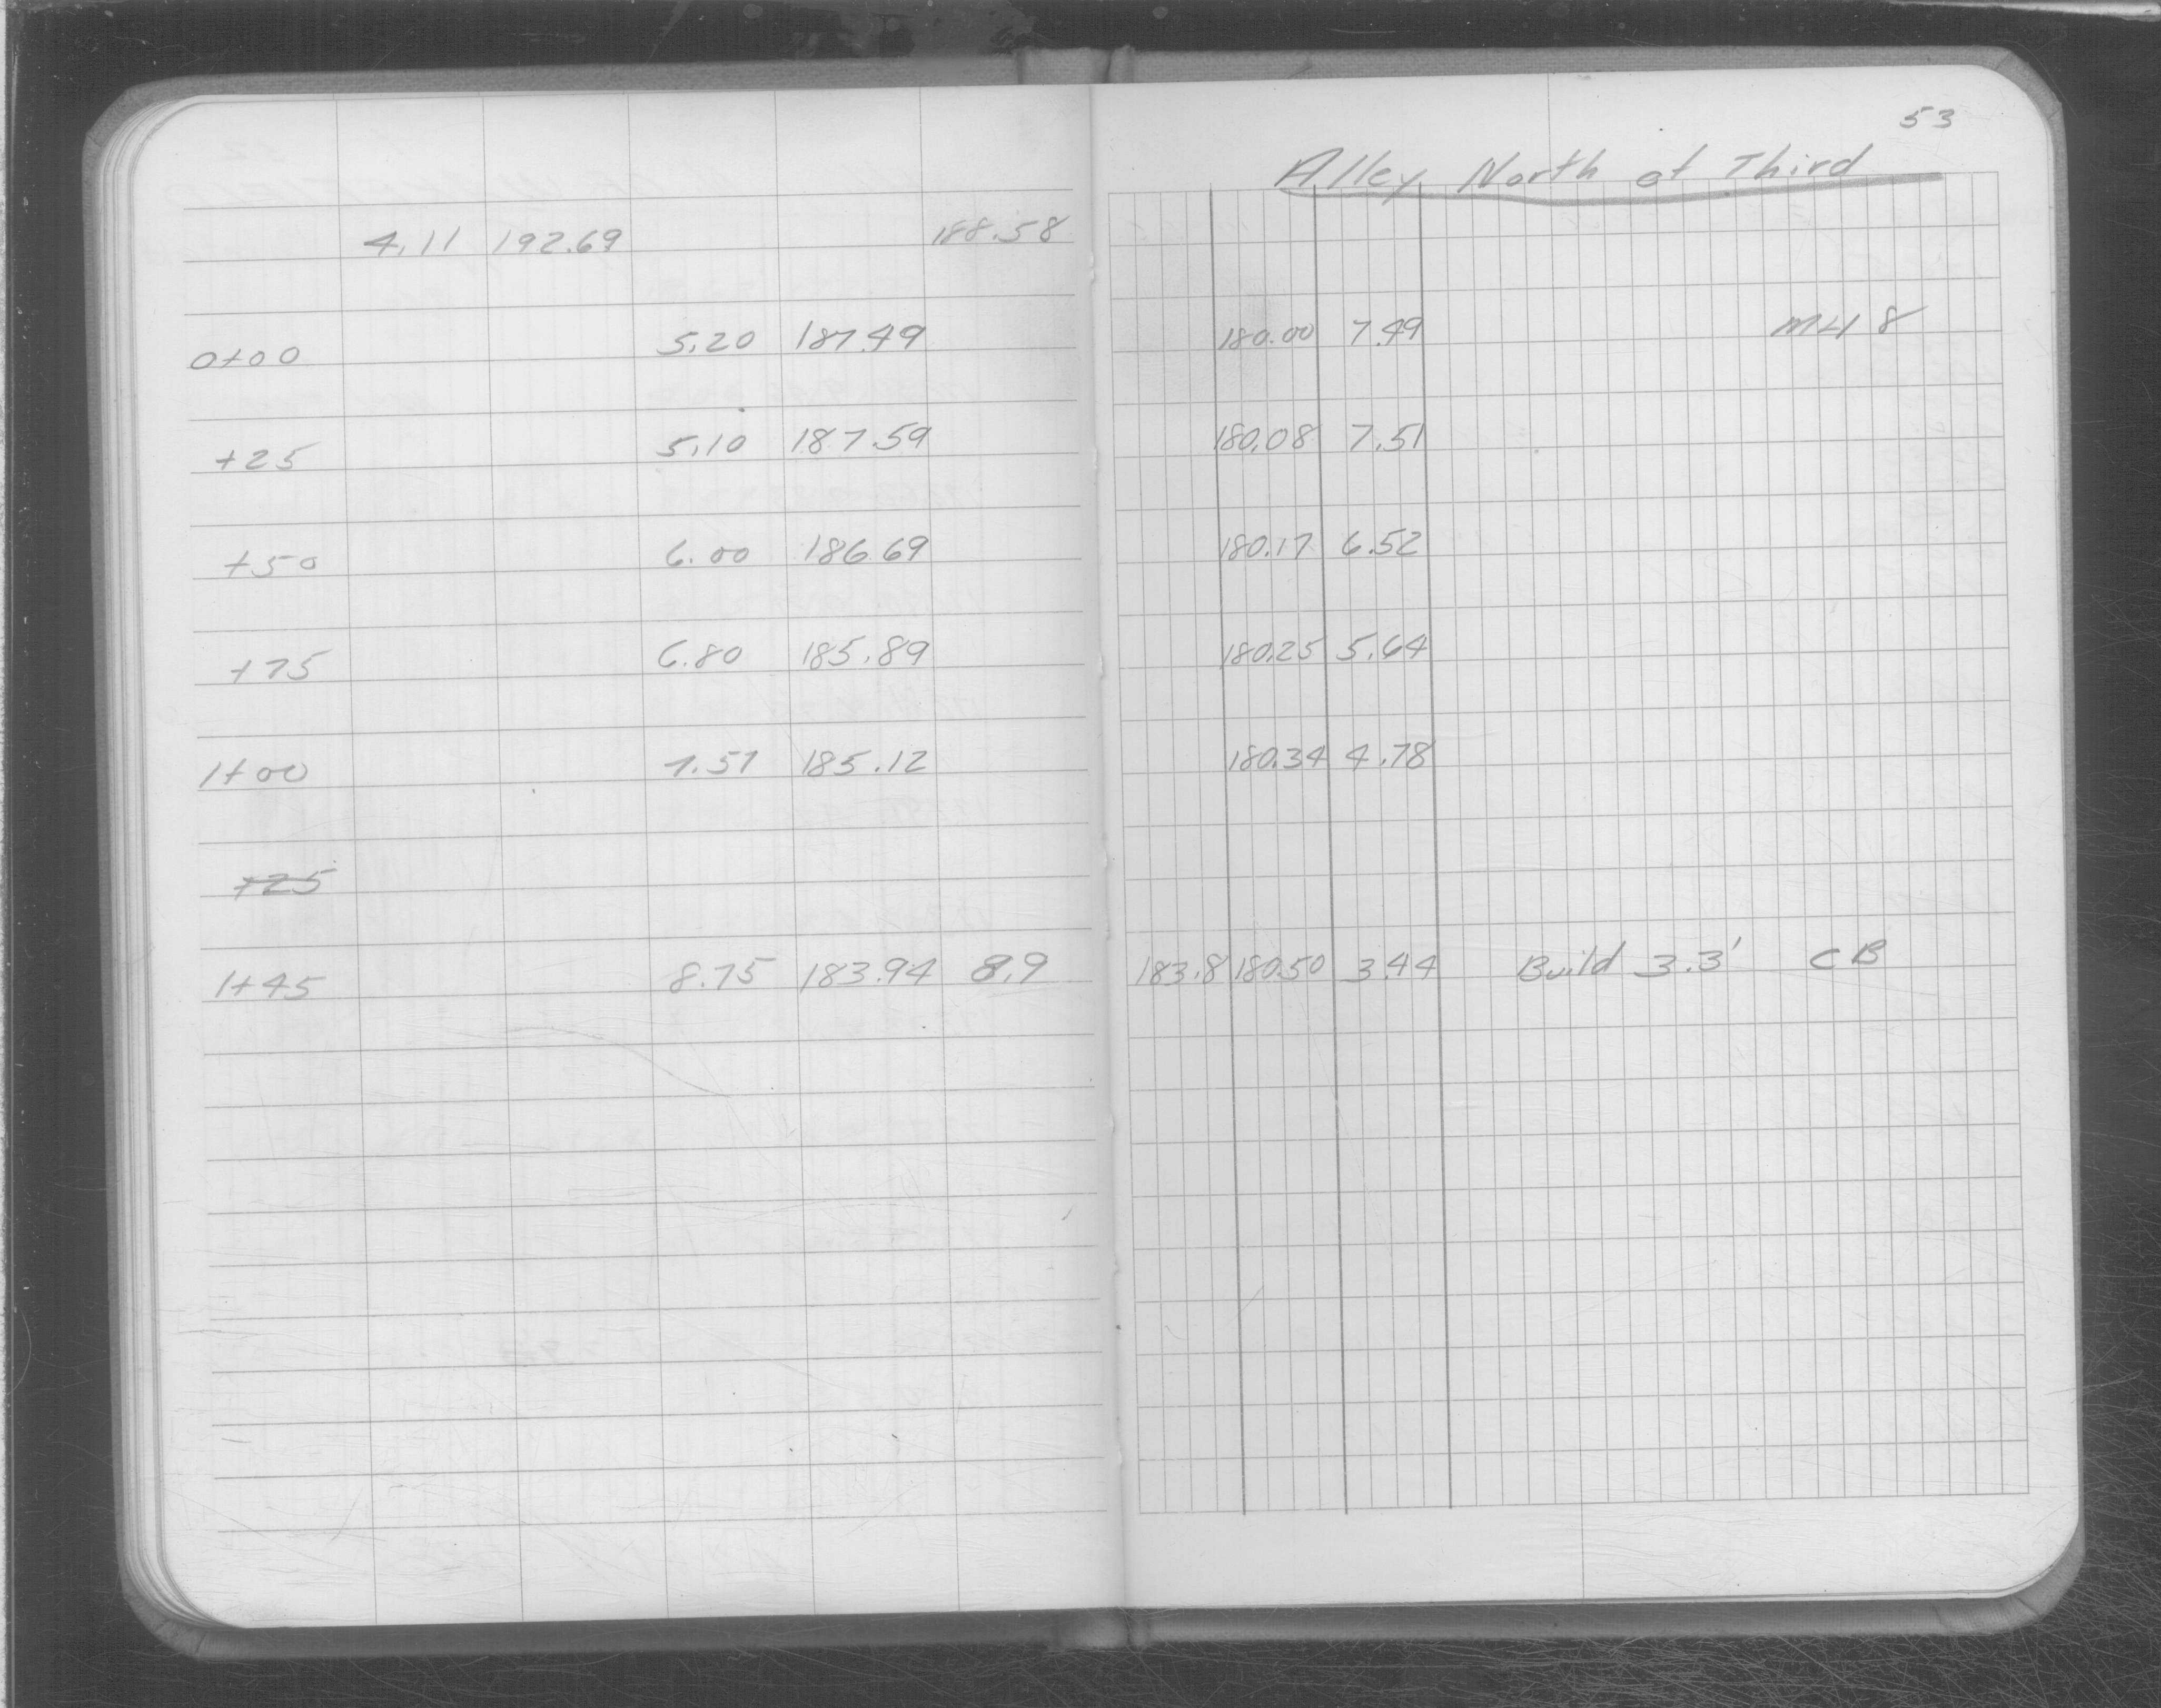 53
Alley North of Third
4.11 192.69 188.58
0+00 5.20 187.49 180.00 7.49 MH 8
+25 5.10 187.59 180.08 7.51
+50 6.00 186.69 180.17 6.52
+75 6.80 185.89 180.25 5.64
1+00 7.57 185.12 180.34 4.78
+25
1+45 8.75 183.94 8.9 183.8 180.50 3.44 Build 3.3' CB